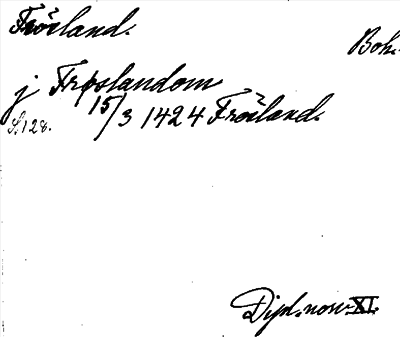 Fröland.
Boh.
j Frøslandom
S. 128. 15/3 1424 Fröland.
Dipl. norv. XI.